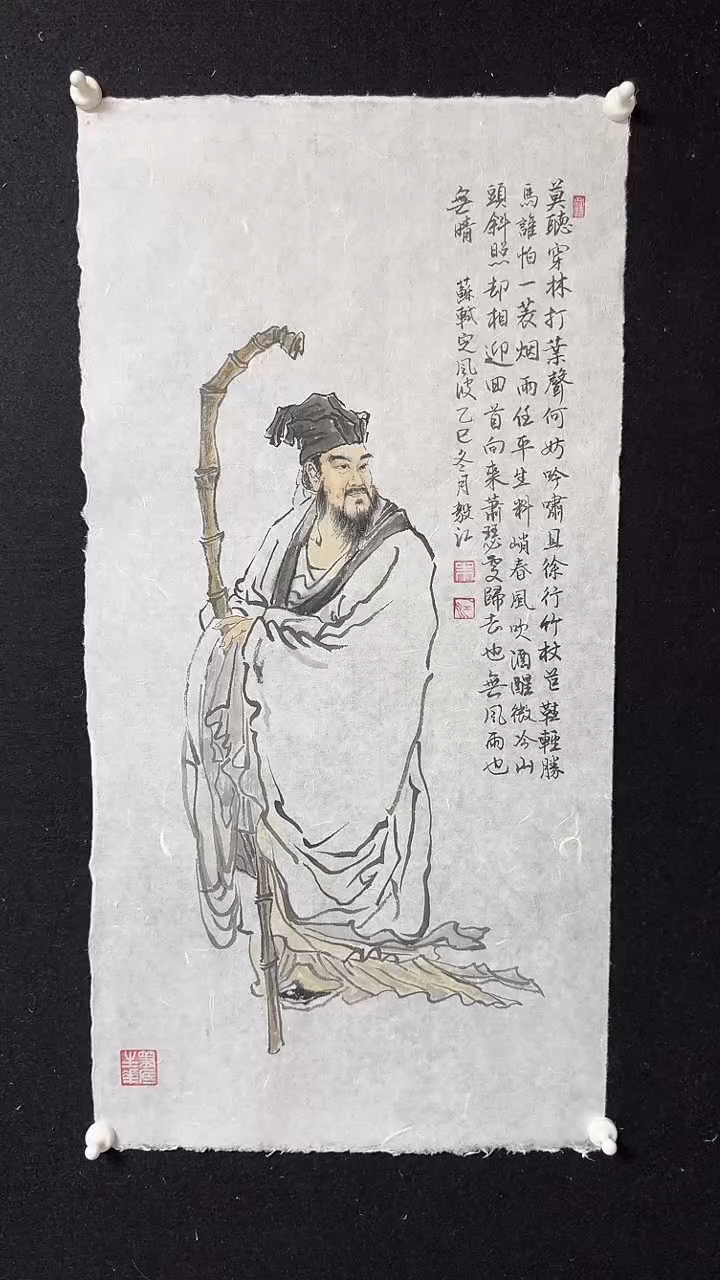 莫聽穿林打葉聲何妨吟嘯且徐行竹杖芒鞋輕勝
馬誰怕一蓑烟雨任平生料峭春風吹酒醒微冷山
頭斜照却相迎回首向來蕭瑟處歸去也無風雨也
無晴 蘇軾定風波乙巳冬月毅江
江